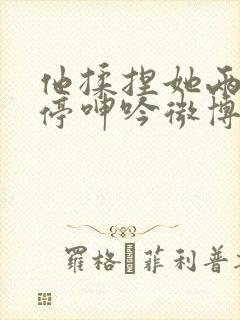 他揉捏她两
停呻吟微博
羅格 菲利普